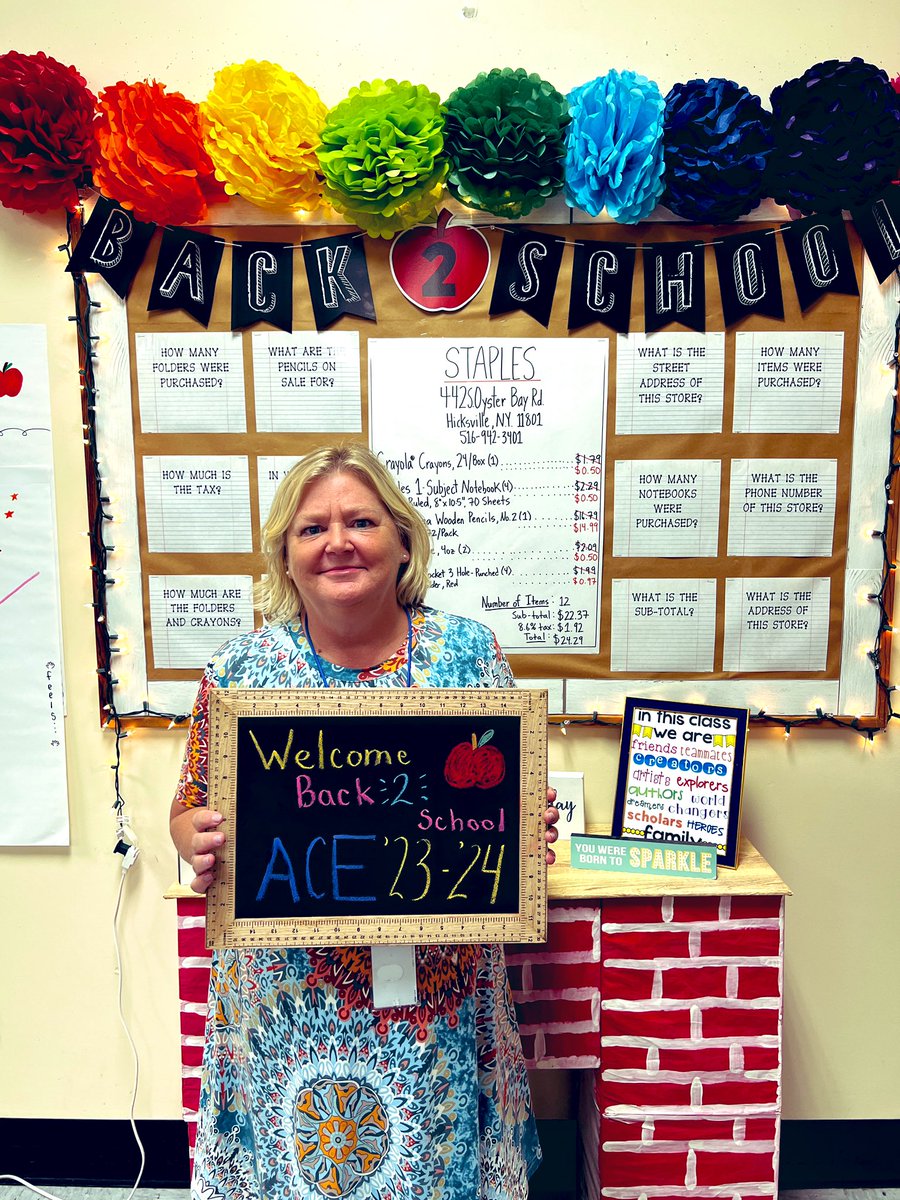 BACK 2 SCHOOL
HOW MANY
FOLDERS WERE
PURCHASED?
WHAT ARE THE
PENCILS ON
SALE FOR?
HOW MUCH IS
THE TAX?
HOW MUCH ARE
THE FOLDERS
AND CRAYONS?
STAPLES
442 S. Oyster Bay Rd.
Hicksville, N.Y. 11801
516-942-3401
Crayola® Crayons, 24/Box (1) $1.79
$0.50
1-Subject Notebook (4) $2.29
Ruled, 8"x10.5", 70 Sheets $0.50
Wooden Pencils, No.2 (1) $16.79
/Pack $14.99
4oz (2) $2.09
$0.50
3 Hole-Punched (4) $1.49
Red $0.97
Number of Items: 12
Sub-total: $22.37
8.6% tax: $1.92
Total: $24.29
WHAT IS THE
STREET
ADDRESS OF
THIS STORE?
HOW MANY
ITEMS WERE
PURCHASED?
HOW MANY
NOTEBOOKS
WERE
PURCHASED?
WHAT IS THE
PHONE NUMBER
OF THIS STORE?
WHAT IS THE
SUB-TOTAL?
WHAT IS THE
ADDRESS OF
THIS STORE?
Welcome
Back 2
School
ACE '23-'24
in this class
we are
friends teammates
creators
artists explorers
authors world
dreamers changers
scholars HEROES
family
YOU WERE
BORN TO SPARKLE